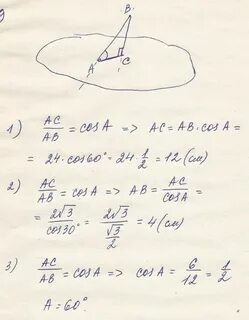 9
B
A
C
1) AC/AB = cos A => AC = AB · cos A =
= 24 · cos 60° = 24 · 1/2 = 12 (см)
2) AC/AB = cos A => AB = AC/cos A =
= 2√3/cos 30° = 2√3/(√3/2) = 4 (см)
3) AC/AB = cos A => cos A = 6/12 = 1/2
A = 60°.